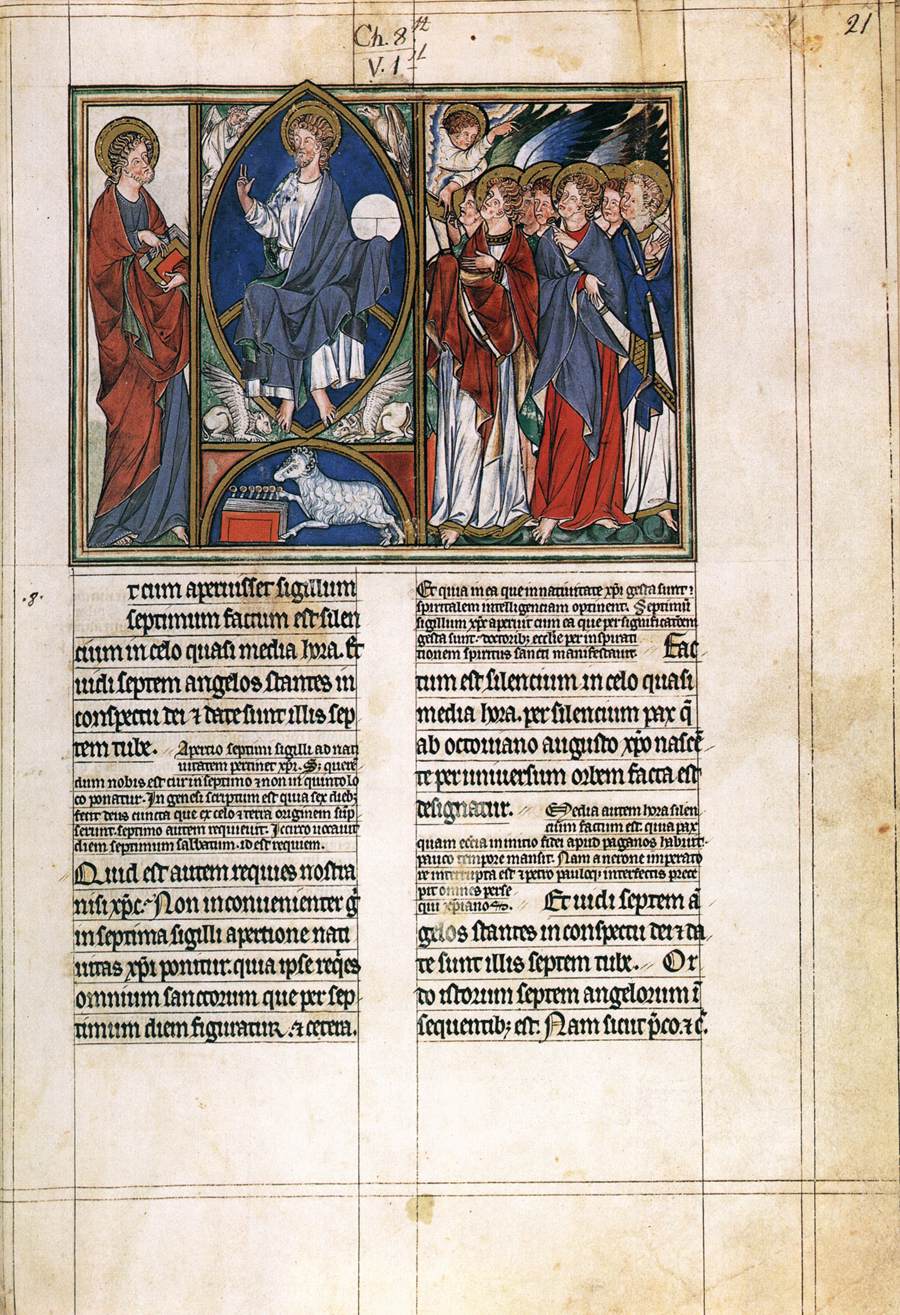 21
Ch. 8th
V. 1st
.8.
t cum aperuisset sigillum
septimum factum est silen
cium in celo quasi media hora. Et
uidi septem angelos stantes in
conspectu dei ⁊ date sunt illis sep
tem tube. Apercio septimi sigilli ad nati
uitatem pertinet xp̄i. S; queren
dum nobis est cur in septimo ⁊ non in quinto lo
co ponatur. In genesi scriptum est quia sex dieb;
fecit deus cuncta que ex celo ⁊ terra originem sūp
serunt. septimo autem requieuit. Iccirco uocauit
diem septimum sabbatum. id est requiem.
Quid est autem requies nostra
nisi xp̄c. Non inconuenienter g̅
in septima sigilli apertione nati
uitas xp̄i ponitur. quia ipse reqͥes
omnium sanctorum que per sep
timum diem figuratur. ⁊ cetera.
Et quia in ea que in natiuitate xp̄i gesta sunt ⁊
spiritalem intelligenciam optinent. Septimū
sigillum xp̄c aperuit cum ea que per significacionem
gesta sunt. doctorib; ecclīe per inspirati
tionem spiritus sancti manifestauit. Fac
tum est silencium in celo quasi
media hora. per silencium pax q̄
ab octouiano augusto xp̄o nascē
te per uniuersum orbem facta est
designatur. Media autem hora silen
cium factum est. quia pax
quam ecc̄ia in inicio fidei apud paganos habuit.
pauco tempore mansit. Nam a nerone imperato
re interrupta est ⁊ petro pauloq; interfectis prece
pit omnes perse
qui xp̄ianos. Et uidi septem ā
gelos stantes in conspectu dei ⁊ da
te sunt illis septem tube. Or
do istorum septem angelorum ī
sequentib; est. Nam sicut p̄co. ⁊ c̄.